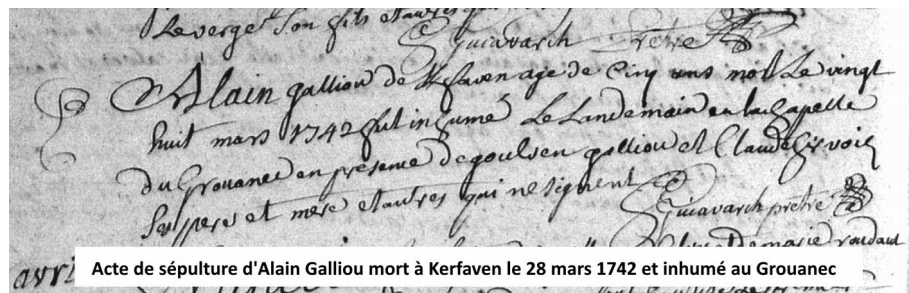 Leverge Son fils et autres qui
Guiavarch Prêtre
Alain galliou de Kfaven age de Cinq ans mort Le vingt
huit mars 1742 fut inhumé Le Landemain en la Chapelle
du Grouanec en presence de goulsen galliou et Claude
Ses pere et mere et autres qui ne signent
Guiavarch prêtre
de marie roudaut
avri
Acte de sépulture d'Alain Galliou mort à Kerfaven le 28 mars 1742 et inhumé au Grouanec